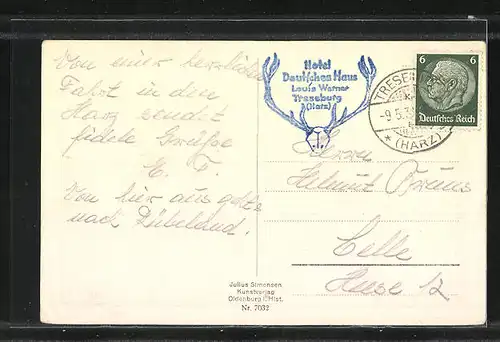 Von einer herrlichen
Fahrt in den
Harz sendet
fidele Grüße
E. F.
Von hier aus geht's
nach Rübeland.
Hotel
Deutsches Haus
Louis Werner
Treseburg
(Harz)
TRESEBURG
-9.5.
* (HARZ)
6 6
Deutsches Reich
Herrn
Helmut
Celle
Heese 12
Julius Simonsen
Kunstverlag
Oldenburg i. Hlst.
Nr. 7032